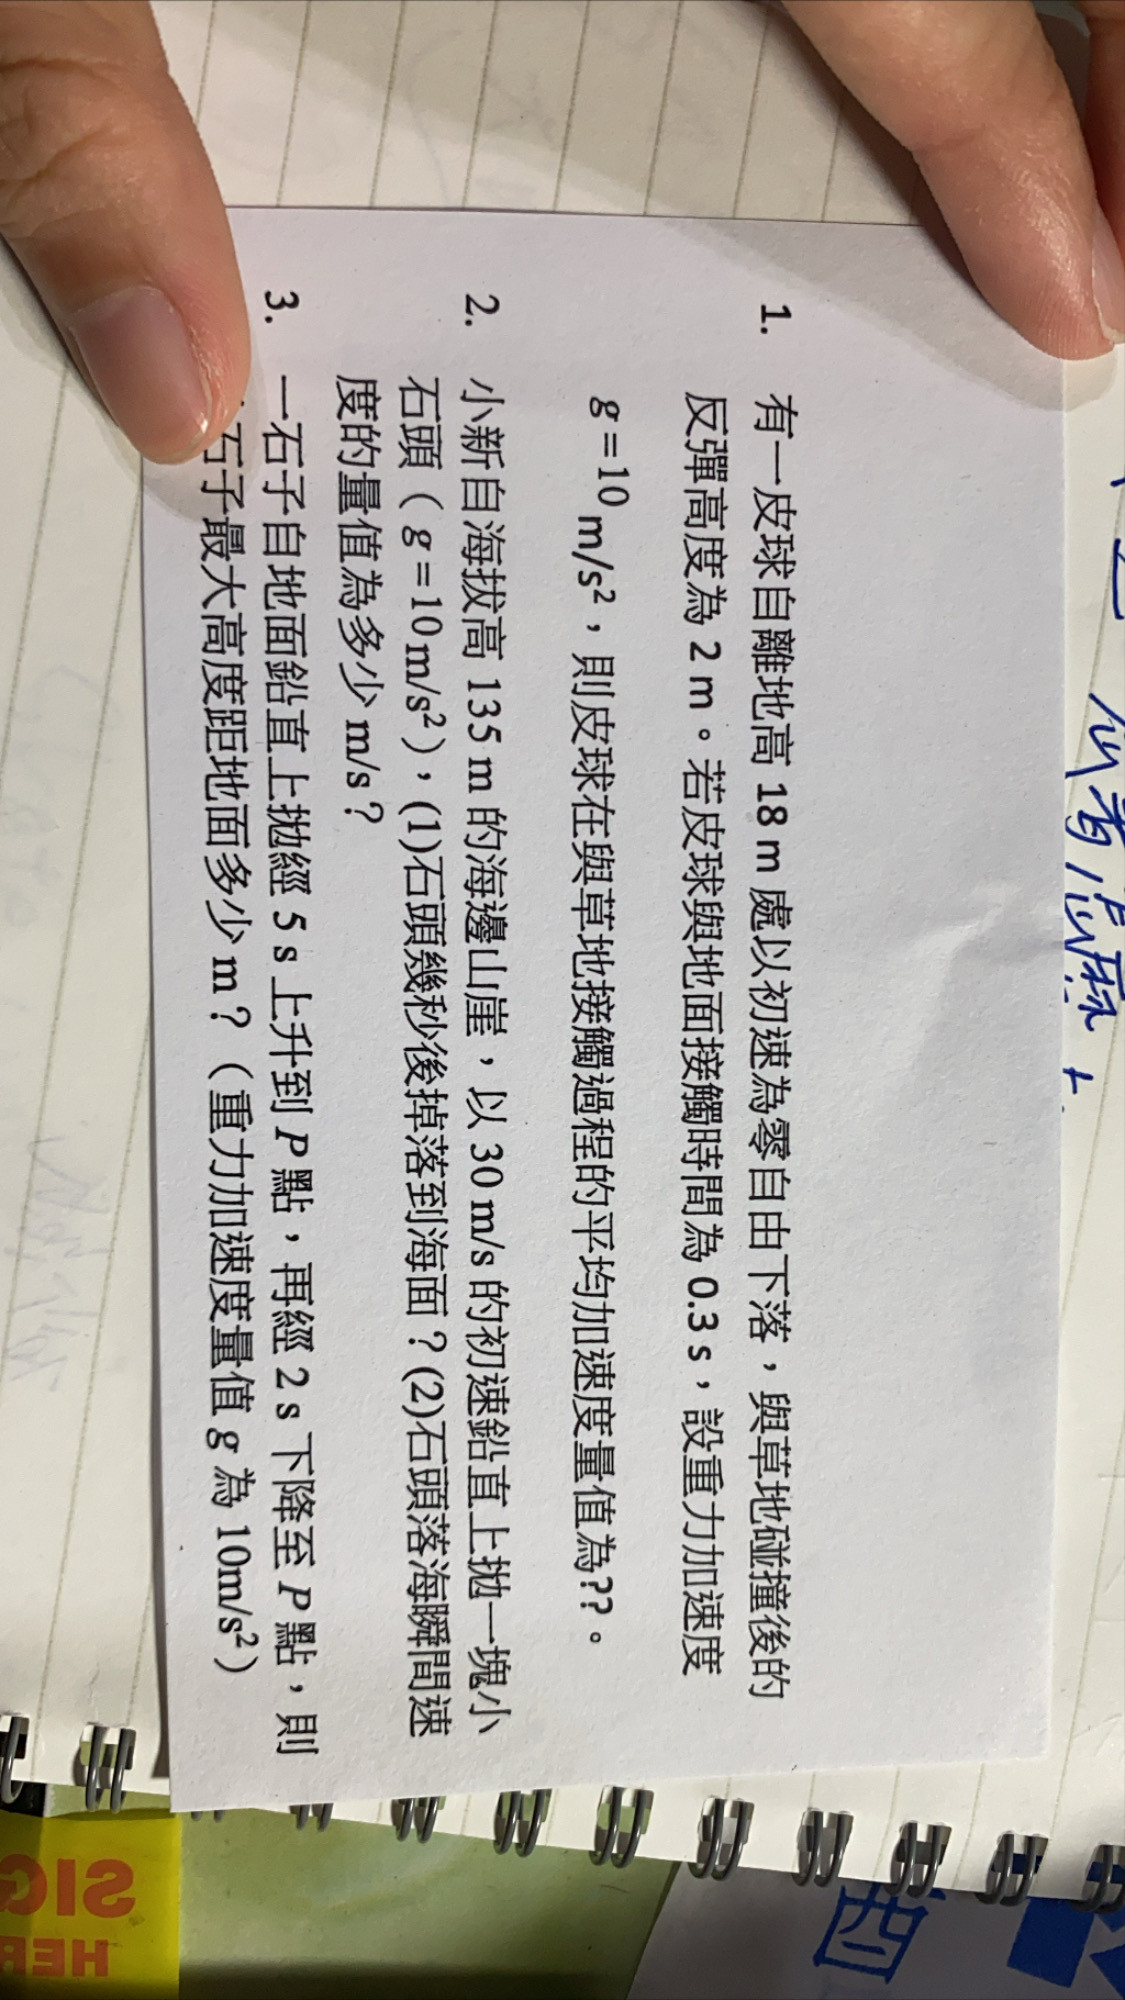 1. 有一皮球自離地高 18 m 處以初速為零自由下落，與草地碰撞後的
反彈高度為 2 m。若皮球與地面接觸時間為 0.3 s，設重力加速度
g=10 m/s²，則皮球在與草地接觸過程的平均加速度量值為??。
2. 小新自海拔高 135 m 的海邊山崖，以 30 m/s 的初速鉛直上拋一塊小
石頭（g=10 m/s²），(1)石頭幾秒後掉落到海面？(2)石頭落海瞬間速
度的量值為多少 m/s？
3. 一石子自地面鉛直上拋經 5 s 上升到 P 點，再經 2 s 下降至 P 點，則
石子最大高度距地面多少 m？（重力加速度量值 g 為 10m/s²）
西
SIG
HER